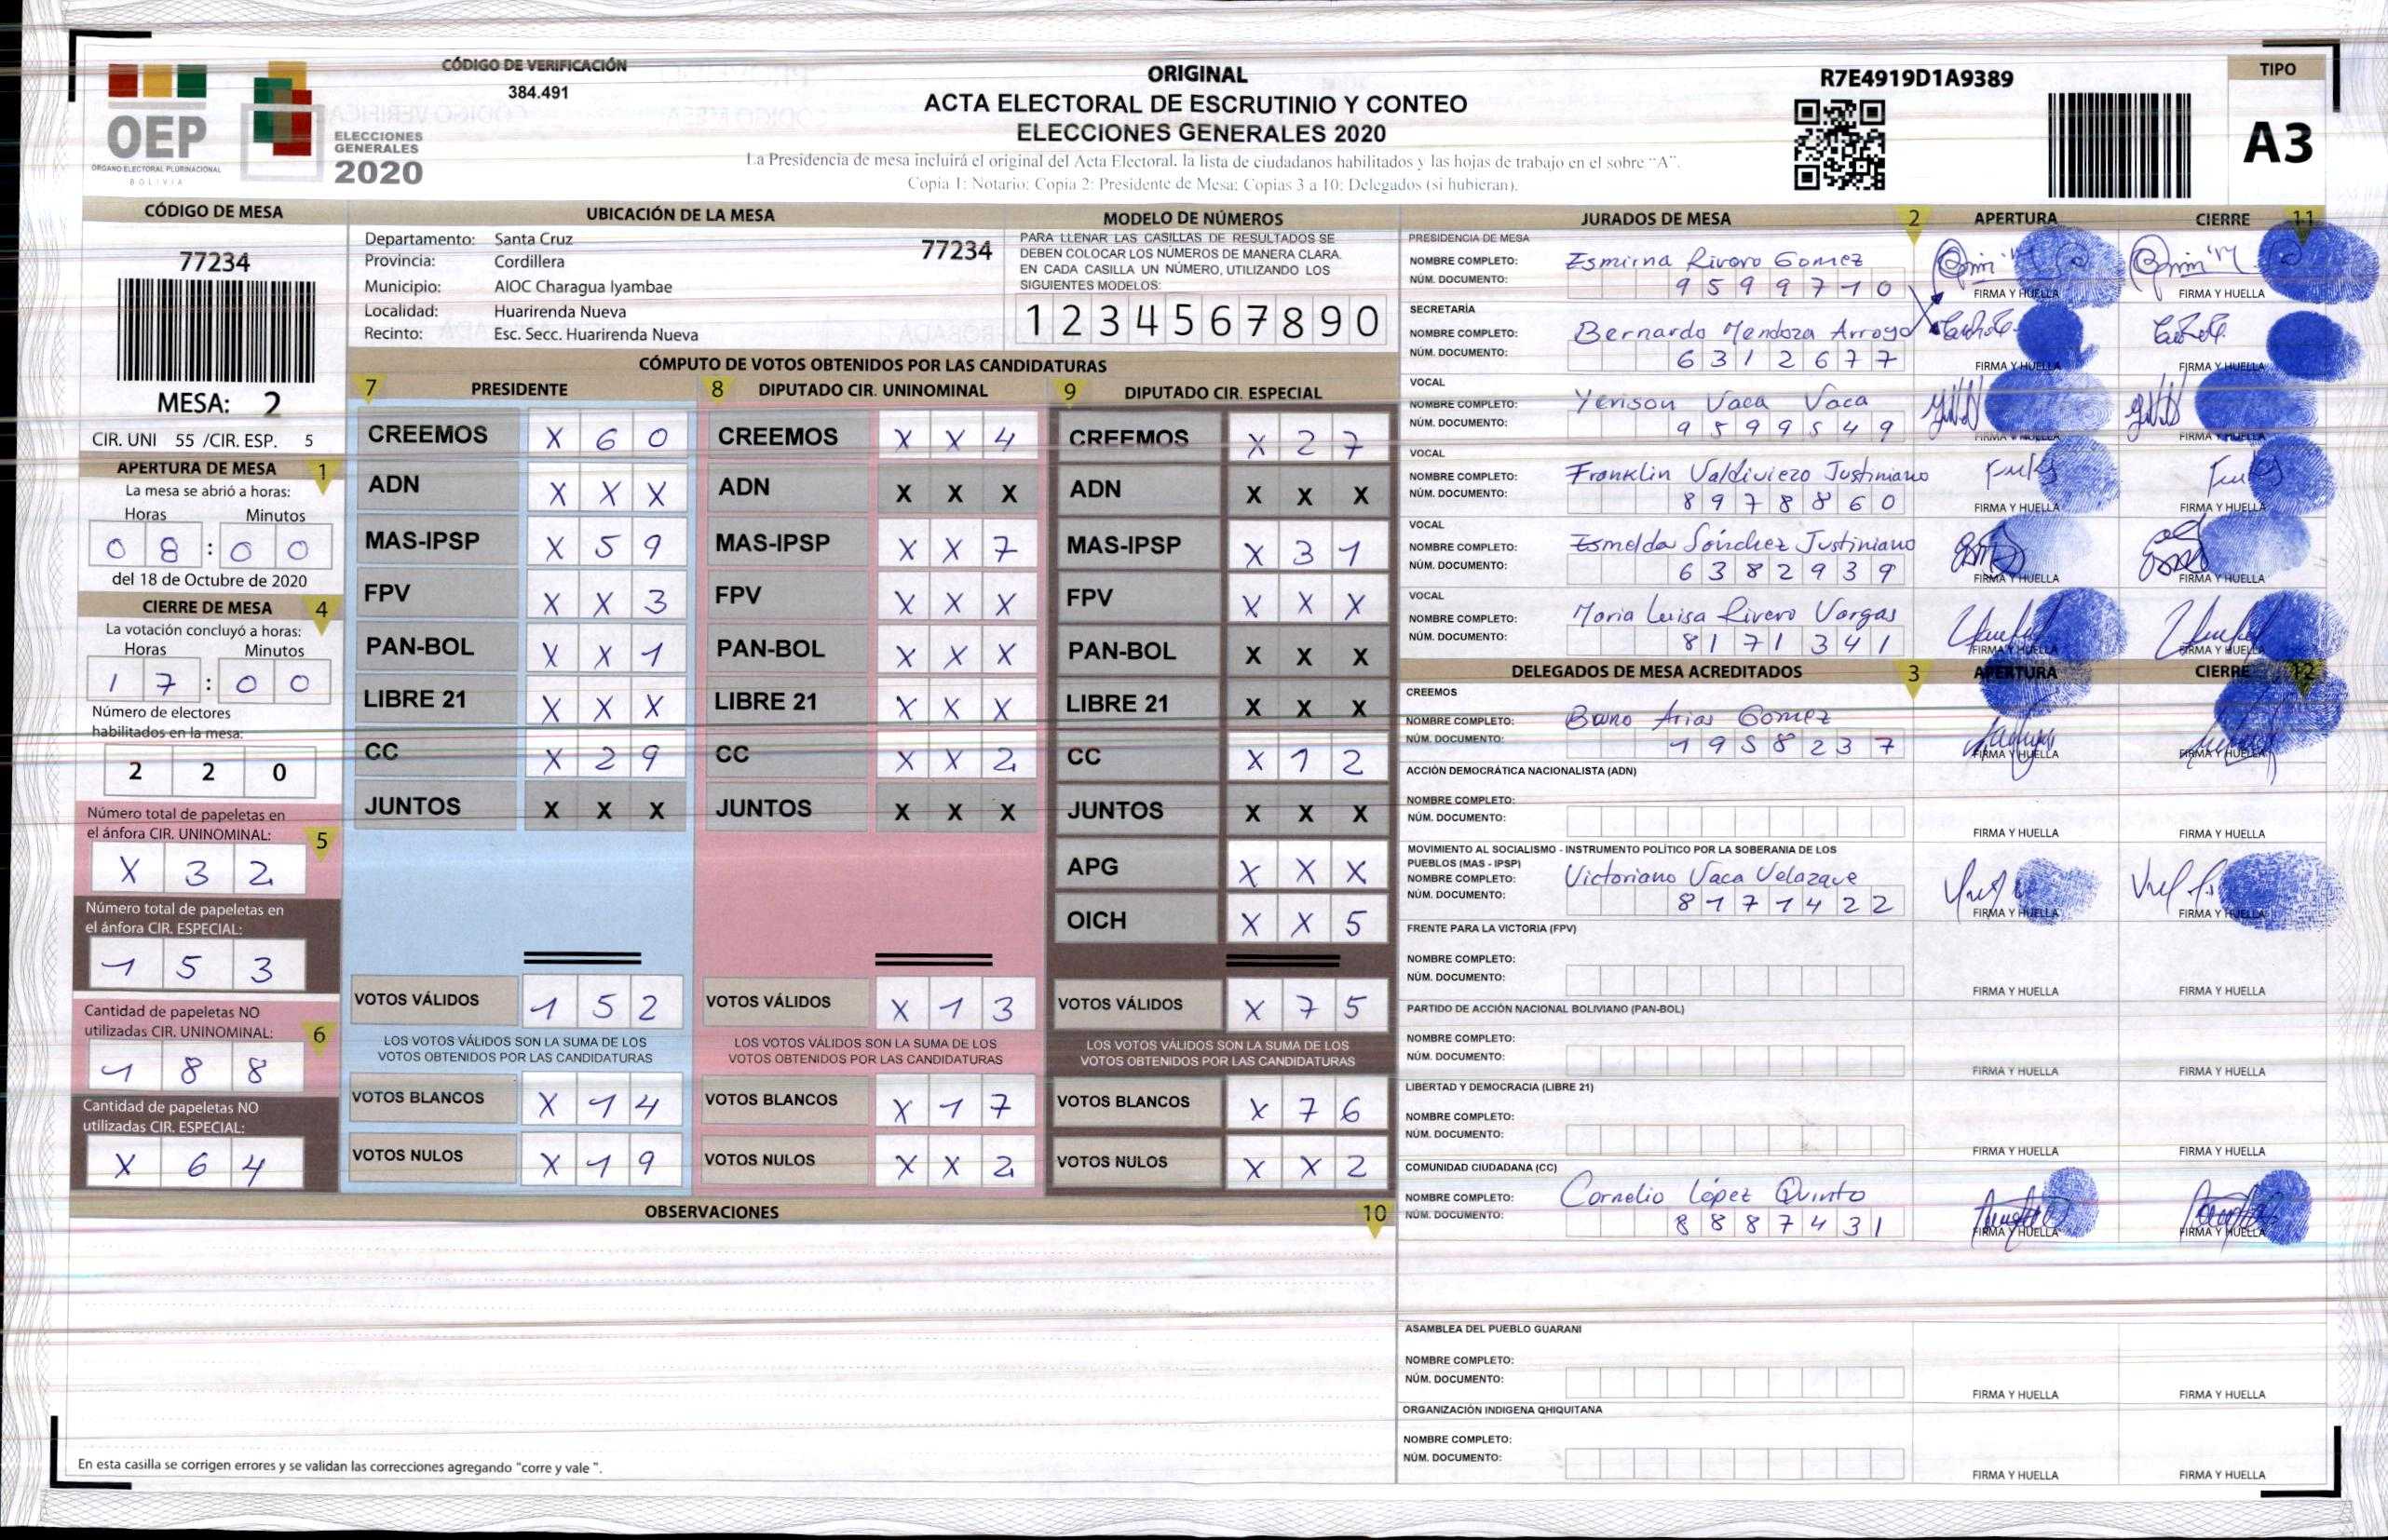 OEP
ÓRGANO ELECTORAL PLURINACIONAL
BOLIVIA
ELECCIONES
GENERALES
2020
CÓDIGO DE VERIFICACIÓN
384.491
ORIGINAL
ACTA ELECTORAL DE ESCRUTINIO Y CONTEO
ELECCIONES GENERALES 2020
La Presidencia de mesa incluirá el original del Acta Electoral, la lista de ciudadanos habilitados y las hojas de trabajo en el sobre "A".
Copia 1: Notario; Copia 2: Presidente de Mesa; Copias 3 a 10: Delegados (si hubieran).
R7E4919D1A9389
TIPO
A3
CÓDIGO DE MESA
77234
MESA: 2
CIR. UNI 55 /CIR. ESP. 5
APERTURA DE MESA 1
La mesa se abrió a horas:
Horas Minutos
0 8 : 0 0
del 18 de Octubre de 2020
CIERRE DE MESA 4
La votación concluyó a horas:
Horas Minutos
1 7 : 0 0
Número de electores
habilitados en la mesa:
2 2 0
Número total de papeletas en
el ánfora CIR. UNINOMINAL: 5
X 3 2
Número total de papeletas en
el ánfora CIR. ESPECIAL:
1 5 3
Cantidad de papeletas NO
utilizadas CIR. UNINOMINAL: 6
1 8 8
Cantidad de papeletas NO
utilizadas CIR. ESPECIAL:
X 6 4
UBICACIÓN DE LA MESA
Departamento: Santa Cruz 77234
Provincia: Cordillera
Municipio: AIOC Charagua Iyambae
Localidad: Huarirenda Nueva
Recinto: Esc. Secc. Huarirenda Nueva
MODELO DE NÚMEROS
PARA LLENAR LAS CASILLAS DE RESULTADOS SE
DEBEN COLOCAR LOS NÚMEROS DE MANERA CLARA.
EN CADA CASILLA UN NÚMERO, UTILIZANDO LOS
SIGUIENTES MODELOS:
1 2 3 4 5 6 7 8 9 0
CÓMPUTO DE VOTOS OBTENIDOS POR LAS CANDIDATURAS
7 PRESIDENTE
CREEMOS X 6 0
ADN X X X
MAS-IPSP X 5 9
FPV X X 3
PAN-BOL X X 1
LIBRE 21 X X X
CC X 2 9
JUNTOS X X X
VOTOS VÁLIDOS 1 5 2
LOS VOTOS VÁLIDOS SON LA SUMA DE LOS
VOTOS OBTENIDOS POR LAS CANDIDATURAS
VOTOS BLANCOS X 1 4
VOTOS NULOS X 1 9
8 DIPUTADO CIR. UNINOMINAL
CREEMOS X X 4
ADN X X X
MAS-IPSP X X 7
FPV X X X
PAN-BOL X X X
LIBRE 21 X X X
CC X X 2
JUNTOS X X X
VOTOS VÁLIDOS X 1 3
LOS VOTOS VÁLIDOS SON LA SUMA DE LOS
VOTOS OBTENIDOS POR LAS CANDIDATURAS
VOTOS BLANCOS X 1 7
VOTOS NULOS X X 2
9 DIPUTADO CIR. ESPECIAL
CREEMOS X 2 7
ADN X X X
MAS-IPSP X 3 1
FPV X X X
PAN-BOL X X X
LIBRE 21 X X X
CC X 1 2
JUNTOS X X X
APG X X X
OICH X X 5
VOTOS VÁLIDOS X 7 5
LOS VOTOS VÁLIDOS SON LA SUMA DE LOS
VOTOS OBTENIDOS POR LAS CANDIDATURAS
VOTOS BLANCOS X 7 6
VOTOS NULOS X X 2
OBSERVACIONES 10
En esta casilla se corrigen errores y se validan las correcciones agregando "corre y vale ".
JURADOS DE MESA 2 APERTURA CIERRE 11
PRESIDENCIA DE MESA
NOMBRE COMPLETO: Esmirna Rivero Gomez
NÚM. DOCUMENTO: 9 5 9 9 7 1 0
FIRMA Y HUELLA FIRMA Y HUELLA
SECRETARÍA
NOMBRE COMPLETO: Bernardo Mendoza Arroyo
NÚM. DOCUMENTO: 6 3 1 2 6 7 7
FIRMA Y HUELLA FIRMA Y HUELLA
VOCAL
NOMBRE COMPLETO: Yerison Vaca Vaca
NÚM. DOCUMENTO: 9 5 9 9 5 4 9
FIRMA Y HUELLA FIRMA Y HUELLA
VOCAL
NOMBRE COMPLETO: Franklin Valdiviezo Justiniano
NÚM. DOCUMENTO: 8 9 7 8 8 6 0
FIRMA Y HUELLA FIRMA Y HUELLA
VOCAL
NOMBRE COMPLETO: Esmelda Sánchez Justiniano
NÚM. DOCUMENTO: 6 3 8 2 9 3 9
FIRMA Y HUELLA FIRMA Y HUELLA
VOCAL
NOMBRE COMPLETO: Maria Luisa Rivero Vargas
NÚM. DOCUMENTO: 8 1 7 1 3 4 1
FIRMA Y HUELLA FIRMA Y HUELLA
DELEGADOS DE MESA ACREDITADOS 3 APERTURA CIERRE 12
CREEMOS
NOMBRE COMPLETO: Bruno Arias Gomez
NÚM. DOCUMENTO: 1 9 5 8 2 3 7
FIRMA Y HUELLA FIRMA Y HUELLA
ACCIÓN DEMOCRÁTICA NACIONALISTA (ADN)
NOMBRE COMPLETO:
NÚM. DOCUMENTO:
FIRMA Y HUELLA FIRMA Y HUELLA
MOVIMIENTO AL SOCIALISMO - INSTRUMENTO POLÍTICO POR LA SOBERANIA DE LOS
PUEBLOS (MAS - IPSP)
NOMBRE COMPLETO: Victoriano Vaca Velazque
NÚM. DOCUMENTO: 8 1 7 1 4 2 2
FIRMA Y HUELLA FIRMA Y HUELLA
FRENTE PARA LA VICTORIA (FPV)
NOMBRE COMPLETO:
NÚM. DOCUMENTO:
FIRMA Y HUELLA FIRMA Y HUELLA
PARTIDO DE ACCIÓN NACIONAL BOLIVIANO (PAN-BOL)
NOMBRE COMPLETO:
NÚM. DOCUMENTO:
FIRMA Y HUELLA FIRMA Y HUELLA
LIBERTAD Y DEMOCRACIA (LIBRE 21)
NOMBRE COMPLETO:
NÚM. DOCUMENTO:
FIRMA Y HUELLA FIRMA Y HUELLA
COMUNIDAD CIUDADANA (CC)
NOMBRE COMPLETO: Cornelio López Quinto
NÚM. DOCUMENTO: 8 8 8 7 4 3 1
FIRMA Y HUELLA FIRMA Y HUELLA
ASAMBLEA DEL PUEBLO GUARANI
NOMBRE COMPLETO:
NÚM. DOCUMENTO:
FIRMA Y HUELLA FIRMA Y HUELLA
ORGANIZACIÓN INDIGENA QHIQUITANA
NOMBRE COMPLETO:
NÚM. DOCUMENTO:
FIRMA Y HUELLA FIRMA Y HUELLA